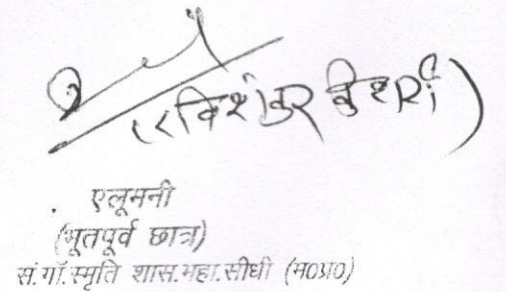 (रविशंकर
एलूमनी
(भूतपूर्व छात्र)
सं.गाॅ.स्मृति शास.महा.सीधी (म०प्र०)